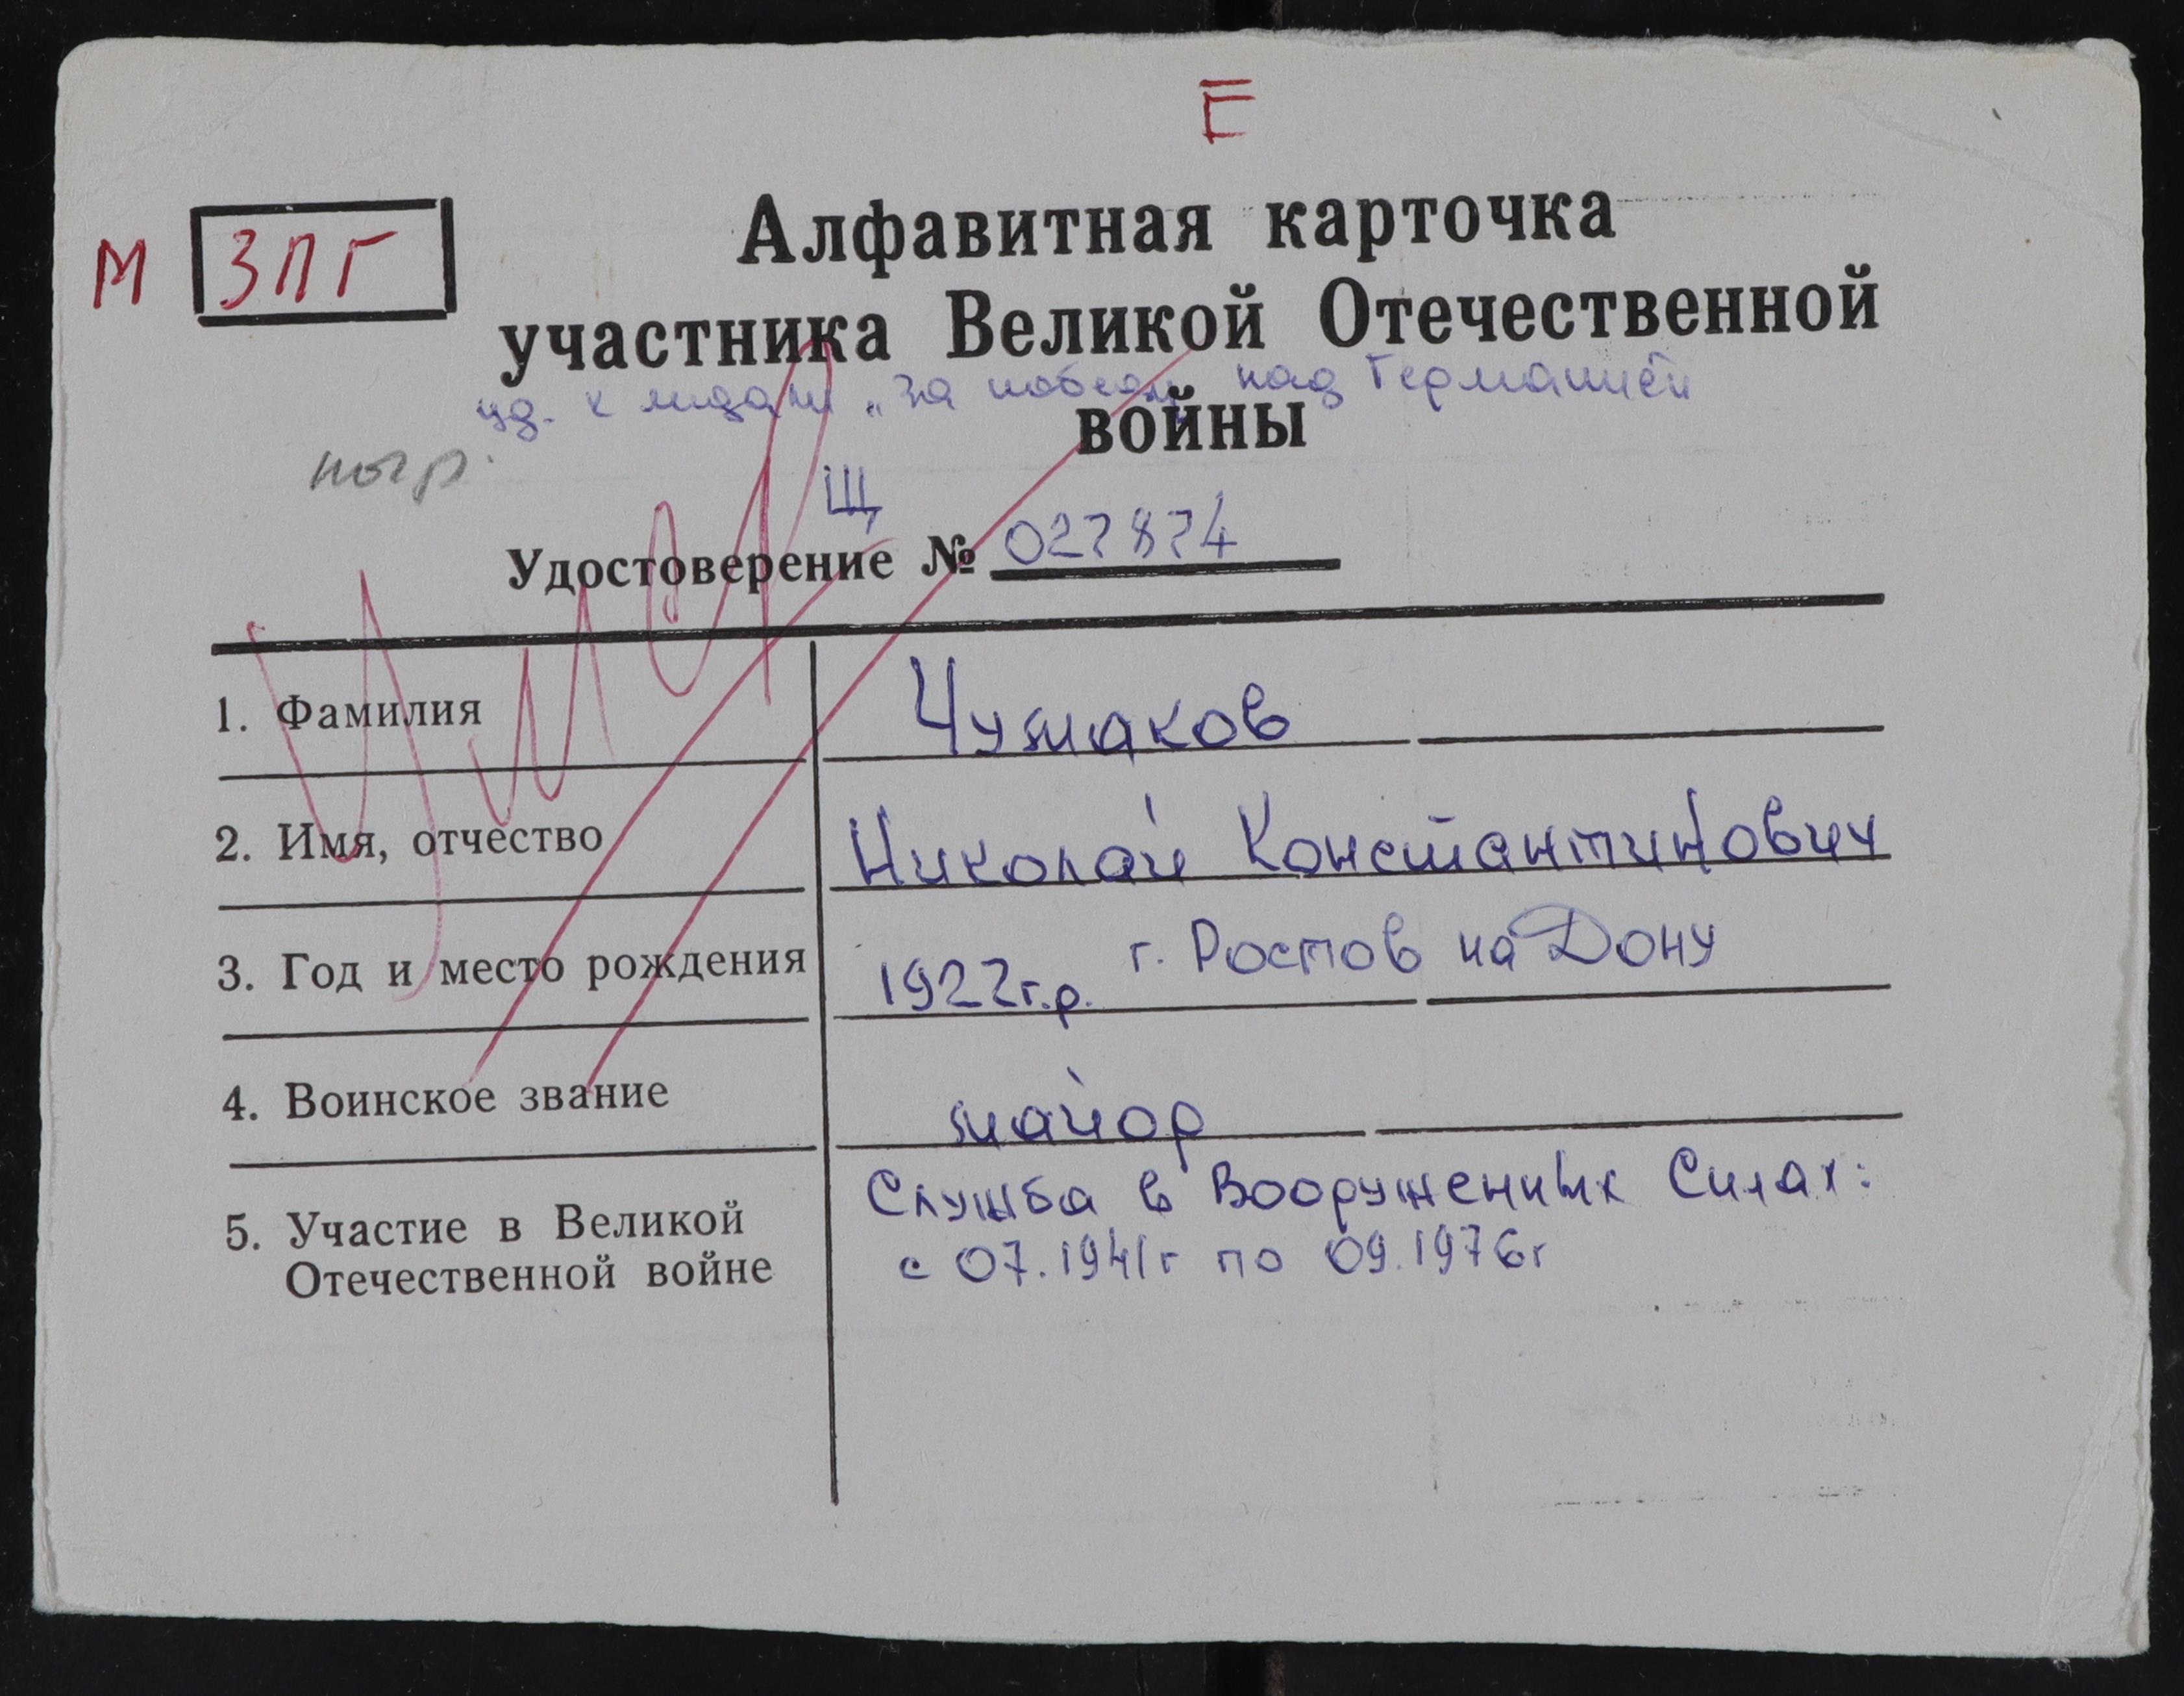 Е
М ЗПГ
Алфавитная карточка
участника Великой Отечественной
уд. к медали „За победу над Германией
войны
погр.
Щ
Удостоверение № 027874
1. Фамилия Чумаков
2. Имя, отчество Николай Константинович
3. Год и место рождения 1922г.р. г. Ростов на Дону
4. Воинское звание майор
5. Участие в Великой Служба в Вооруженных Силах:
Отечественной войне с 07.1941г по 09.1976г